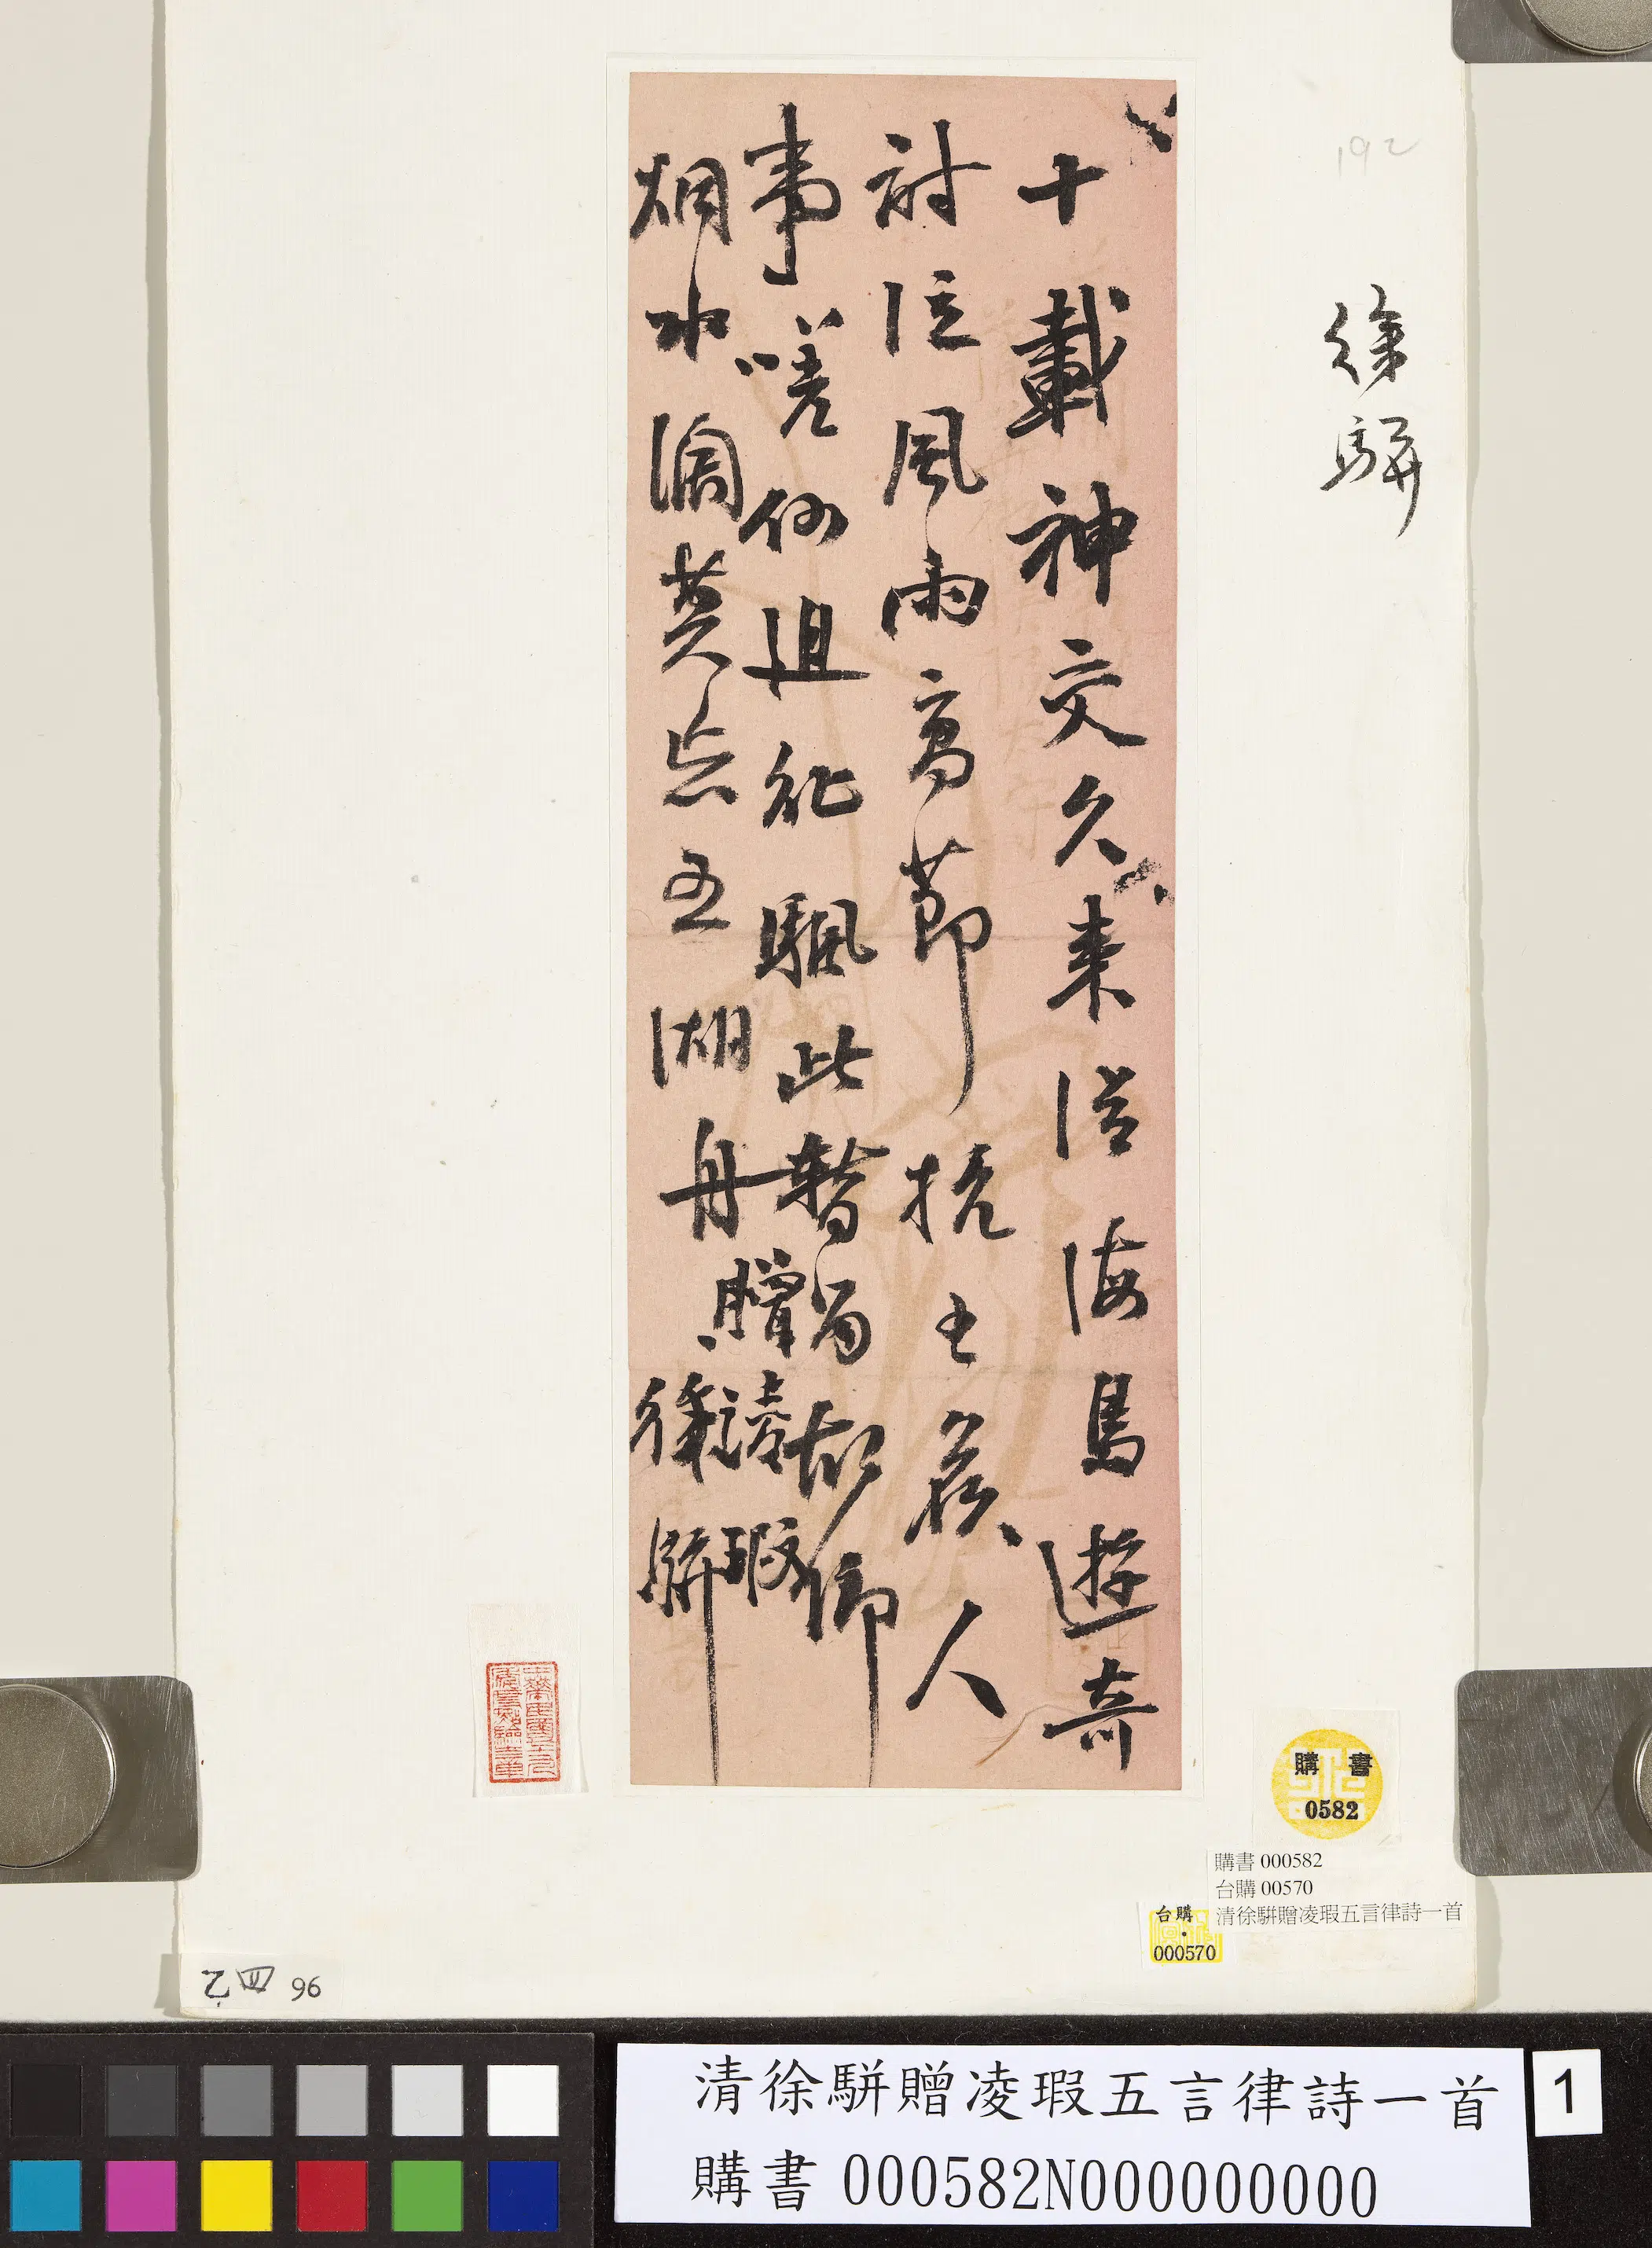 十載神交久來從海島遊奇
詩泣風雨高節抗王侯人
事嗟何迫征颿此暫留故鄉
烟水濶莫忘五湖舟
贈凌瑕
徐駢
192
徐駢
購書
0582
購書 000582
台購 00570
清徐駢贈凌瑕五言律詩一首
台購
000570
乙四 96
清徐駢贈凌瑕五言律詩一首
購書 000582N000000000
1